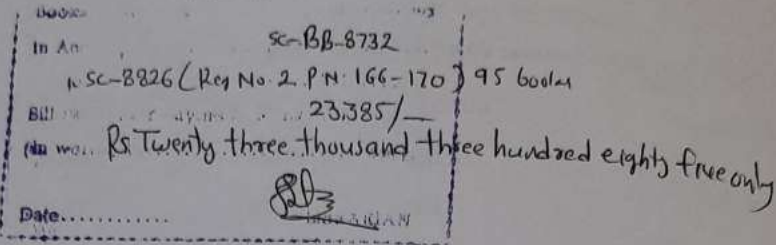 Books
In An
SC-BB-8732
SC-8826 (Reg No. 2 P.N. 166-170) 95 books
Bill 23,385/-
Rs. Twenty three thousand three hundred eighty five only
Date............